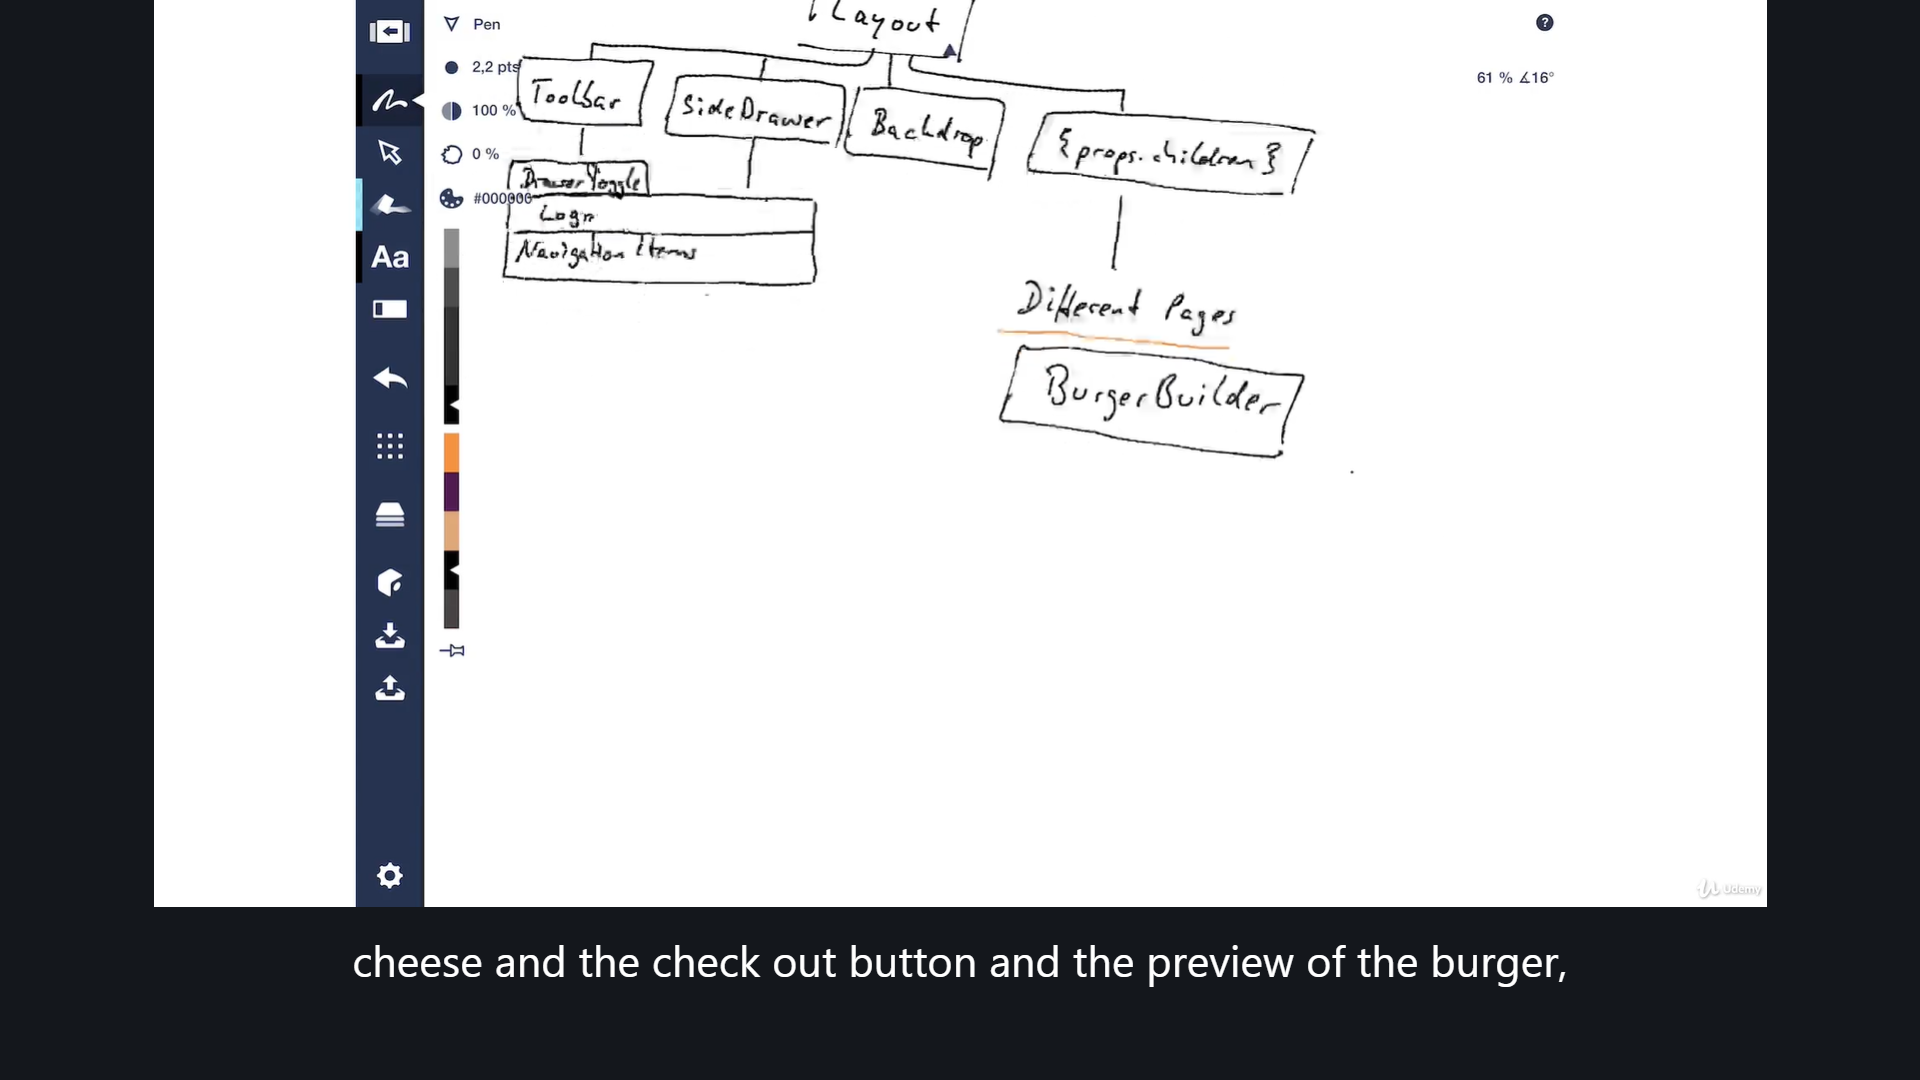 Pen
2,2 pts
100 %
0 %
#000000
Aa
?
61 % ∡16°
Layout
Toolbar
SideDrawer
Backdrop
{props.children}
DrawerToggle
Logo
Navigation Items
Different Pages
BurgerBuilder
Udemy
cheese and the check out button and the preview of the burger,